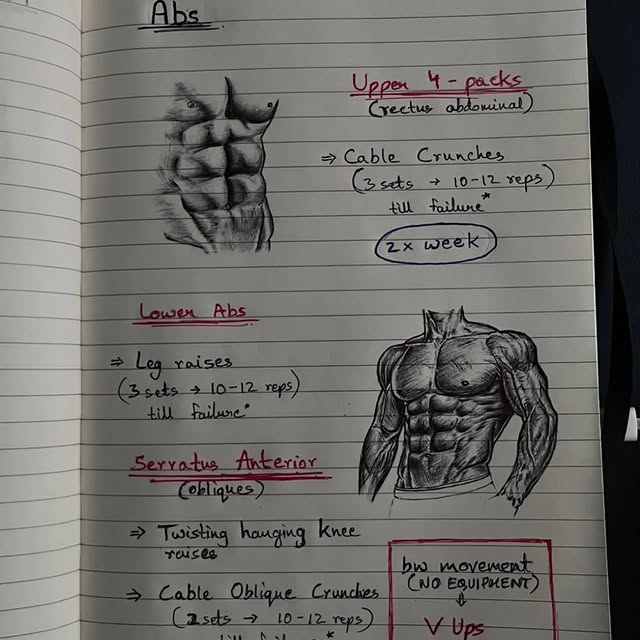 Abs
Upper 4-packs
(rectus abdominal)
⇒ Cable Crunches
(3 sets → 10-12 reps)
till failure*
2x week
Lower Abs
⇒ Leg raises
(3 sets → 10-12 reps)
till failure*
Serratus Anterior
(obliques)
⇒ Twisting hanging knee
raises
⇒ Cable Oblique Crunches
(2 sets → 10-12 reps)
till failure*
bw movement
(NO EQUIPMENT)
↓
V Ups